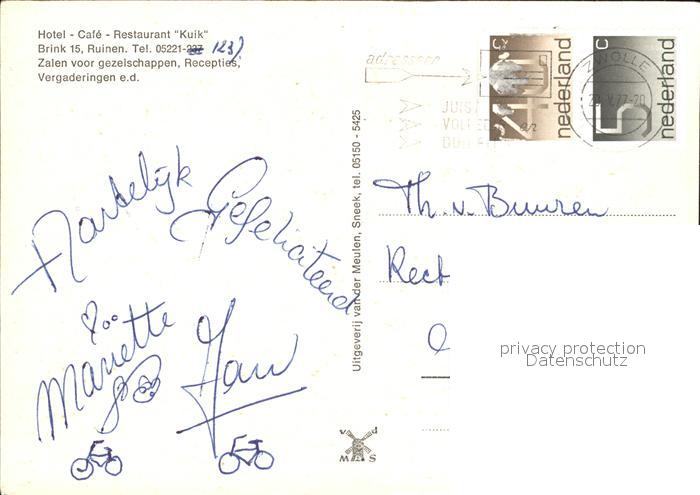 Hotel - Café - Restaurant "Kuik"
Brink 15, Ruinen. Tel. 05221-227 1237
Zalen voor gezelschappen, Recepties,
Vergaderingen e.d.
Hartelijk
Gefeliciteerd
Mariëtte
Jan
Uitgeverij van der Meulen, Sneek, tel. 05150 - 5425
v d
M S
adresseer
JUIST
VOLLEDIG
DUIDELIJK
c
nederland
c
5
nederland
ZWOLLE
Th. v. Buuren
Rect
privacy protection
Datenschutz